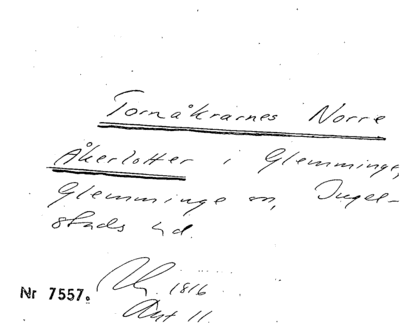 Tornåkrarnes Norre
Åkerlotter i Glemminge,
Glemminge sn, Ingel-
stads hd.
1816
Nr 7557.
Akt 11.